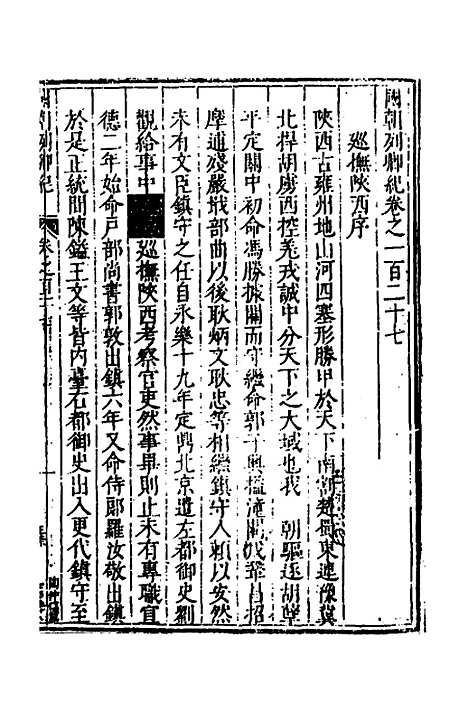 國朝列卿紀卷之一百二十七
巡撫陝西序
陝西古雍州地山河四塞形勝甲於天下南割楚蜀東連豫冀
北捍胡虜西控羌戎誠中分天下之大域也我 朝驅逐胡孽
平定關中初命馮勝據關而守繼命郭子興搤潼關
摩通殘嚴戢部曲以後耿炳文耿忠等相繼鎮守人賴以安然
未有文臣鎮守之任自永樂十九年定鼎北京遣左都御史劉
觀給事中 巡撫陝西考察官吏然事畢則止未有專職宣
德二年始命戶部尚書郭敦出鎮六年又命侍郎羅汝敬出鎮
於是正統間陳鎰王文等皆內臺右都御史出入更代鎮守至
國朝列卿紀
卷之百